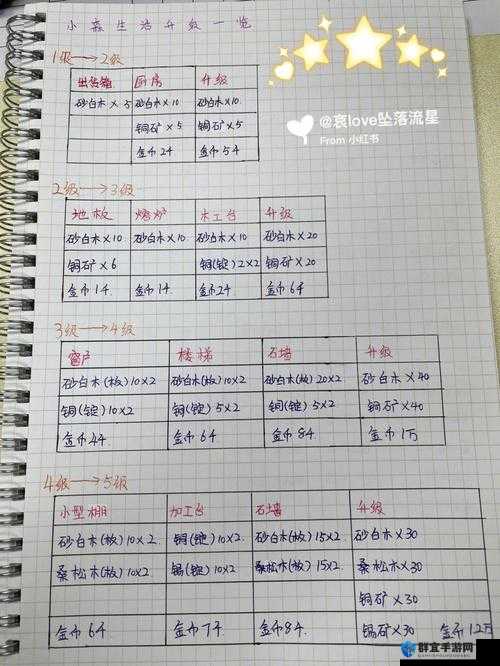 小森生活升级一览
1级→2级
出货箱 厨房 升级
砂白木×5 砂白木×10 砂白木×10
铜矿×5 铜矿×5
金币24 金币54
2级→3级
地板 烤炉 木工台 升级
砂白木×10 砂白木×10 砂白木×10 砂白木×20
铜矿×6 铜(锭)2×2 铜矿×20
金币14 金币14 金币24 金币64
3级→4级
窗户 楼梯 石墙 升级
砂白木(板)10×2 砂白木(板)10×2 砂白木(板)20×2 砂白木×40
铜(锭)10×2 铜(锭)5×2 铜(锭)5×2 铜矿×40
金币44 金币64 金币84 金币1万
4级→5级
小型棚 加工台 石墙 升级
砂白木(板)10×2 铜(锭)10×2 砂白木(板)15×2 砂白木×30
桑松木(板)10×2 锡(锭)10×2 桑松木(板)15×2 桑松木×30
铜矿×30
金币64 金币74 金币84 锡矿×30 金币12万
@哀love坠落流星
From 小红书
群宜手游网